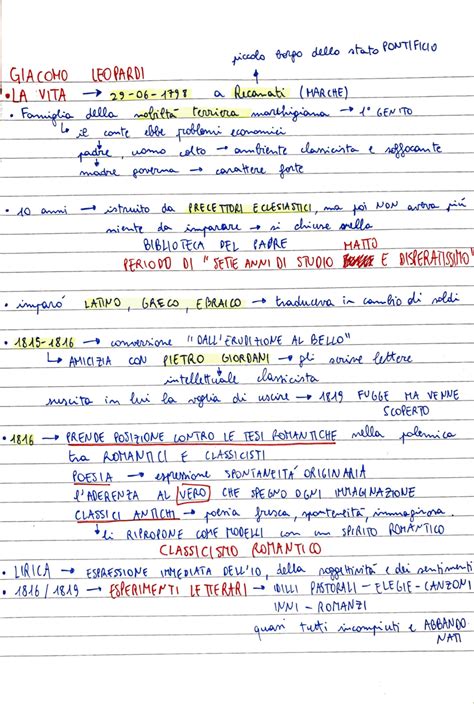 piccolo borgo dello stato PONTIFICIO
GIACOMO LEOPARDI
• LA VITA → 29-06-1798 a Recanati (MARCHE)
• Famiglia della nobiltà terriera marchigiana → 1° GENITO
↳ il conte ebbe problemi economici
padre, uomo colto → ambiente classicista e soffocante
madre governa → carattere forte
• 10 anni → istruito da PRECETTORI ECLESIASTICI, ma poi NON aveva più
niente da imparare → si chiuse nella
BIBLIOTECA DEL PADRE
MATTO
PERIODO DI "SETTE ANNI DI STUDIO E DISPERATISSIMO"
• imparò LATINO, GRECO, EBRAICO → traduceva in cambio di soldi
• 1815-1816 → conversione "DALL'ERUDIZIONE AL BELLO"
↳ AMICIZIA CON PIETRO GIORDANI → gli scrive lettere
intellettuale classicista
suscita in lui la voglia di uscire → 1819 FUGGE MA VENNE
SCOPERTO
• 1816 → PRENDE POSIZIONE CONTRO LE TESI ROMANTICHE nella polemica
tra ROMANTICI E CLASSICISTI
POESIA → espressione SPONTANEITÀ ORIGINARIA
l'ADERENZA AL VERO CHE SPEGNO OGNI IMMAGINAZIONE
CLASSICI ANTICHI → poesia fresca, spontaneità, immaginosa.
↳ li RIPROPONE COME MODELLI CON UN SPIRITO ROMANTICO
CLASSICISMO ROMANTICO
• LIRICA → ESPRESSIONE IMMEDIATA DELL'IO, della soggettività e dei sentimenti
• 1816/1819 → ESPERIMENTI LETTERARI → IDILLI PASTORALI - ELEGIE - CANZONI
INNI - ROMANZI
quasi tutti incompiuti e ABBANDO
NATI